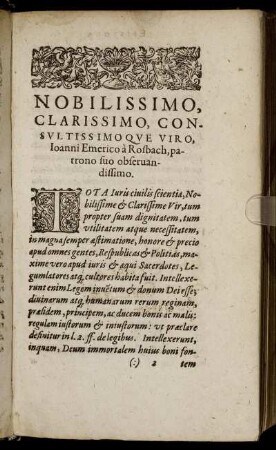 NOBILISSIMO,
CLARISSIMO, CON-
SVLTISSIMOQVE VIRO,
Ioanni Emerico à Rosbach, pa-
trono suo obseruan-
dissimo.
TOTA Iuris ciuilis scientia, No-
bilissime & Clarissime Vir, tum
propter suam dignitatem, tum
vtilitatem atque necessitatem,
in magna semper æstimatione, honore & precio
apud omnes gentes, Respublicas & Politias, ma-
xime vero apud iuris & æqui Sacerdotes, Le-
gumlatores atq; cultores habita fuit. Intellexe-
runt enim Legem inuētum & donum Dei esse,
diuinarum atq; humanarum rerum reginam,
præsidem, principem, ac ducem bonis ac malis;
regulam iustorum & iniustorum: vt præclare
definitur in l. 2. ff. de legibus. Intellexerunt,
inquam, Deum immortalem huius boni fon-
(:) 2 tem